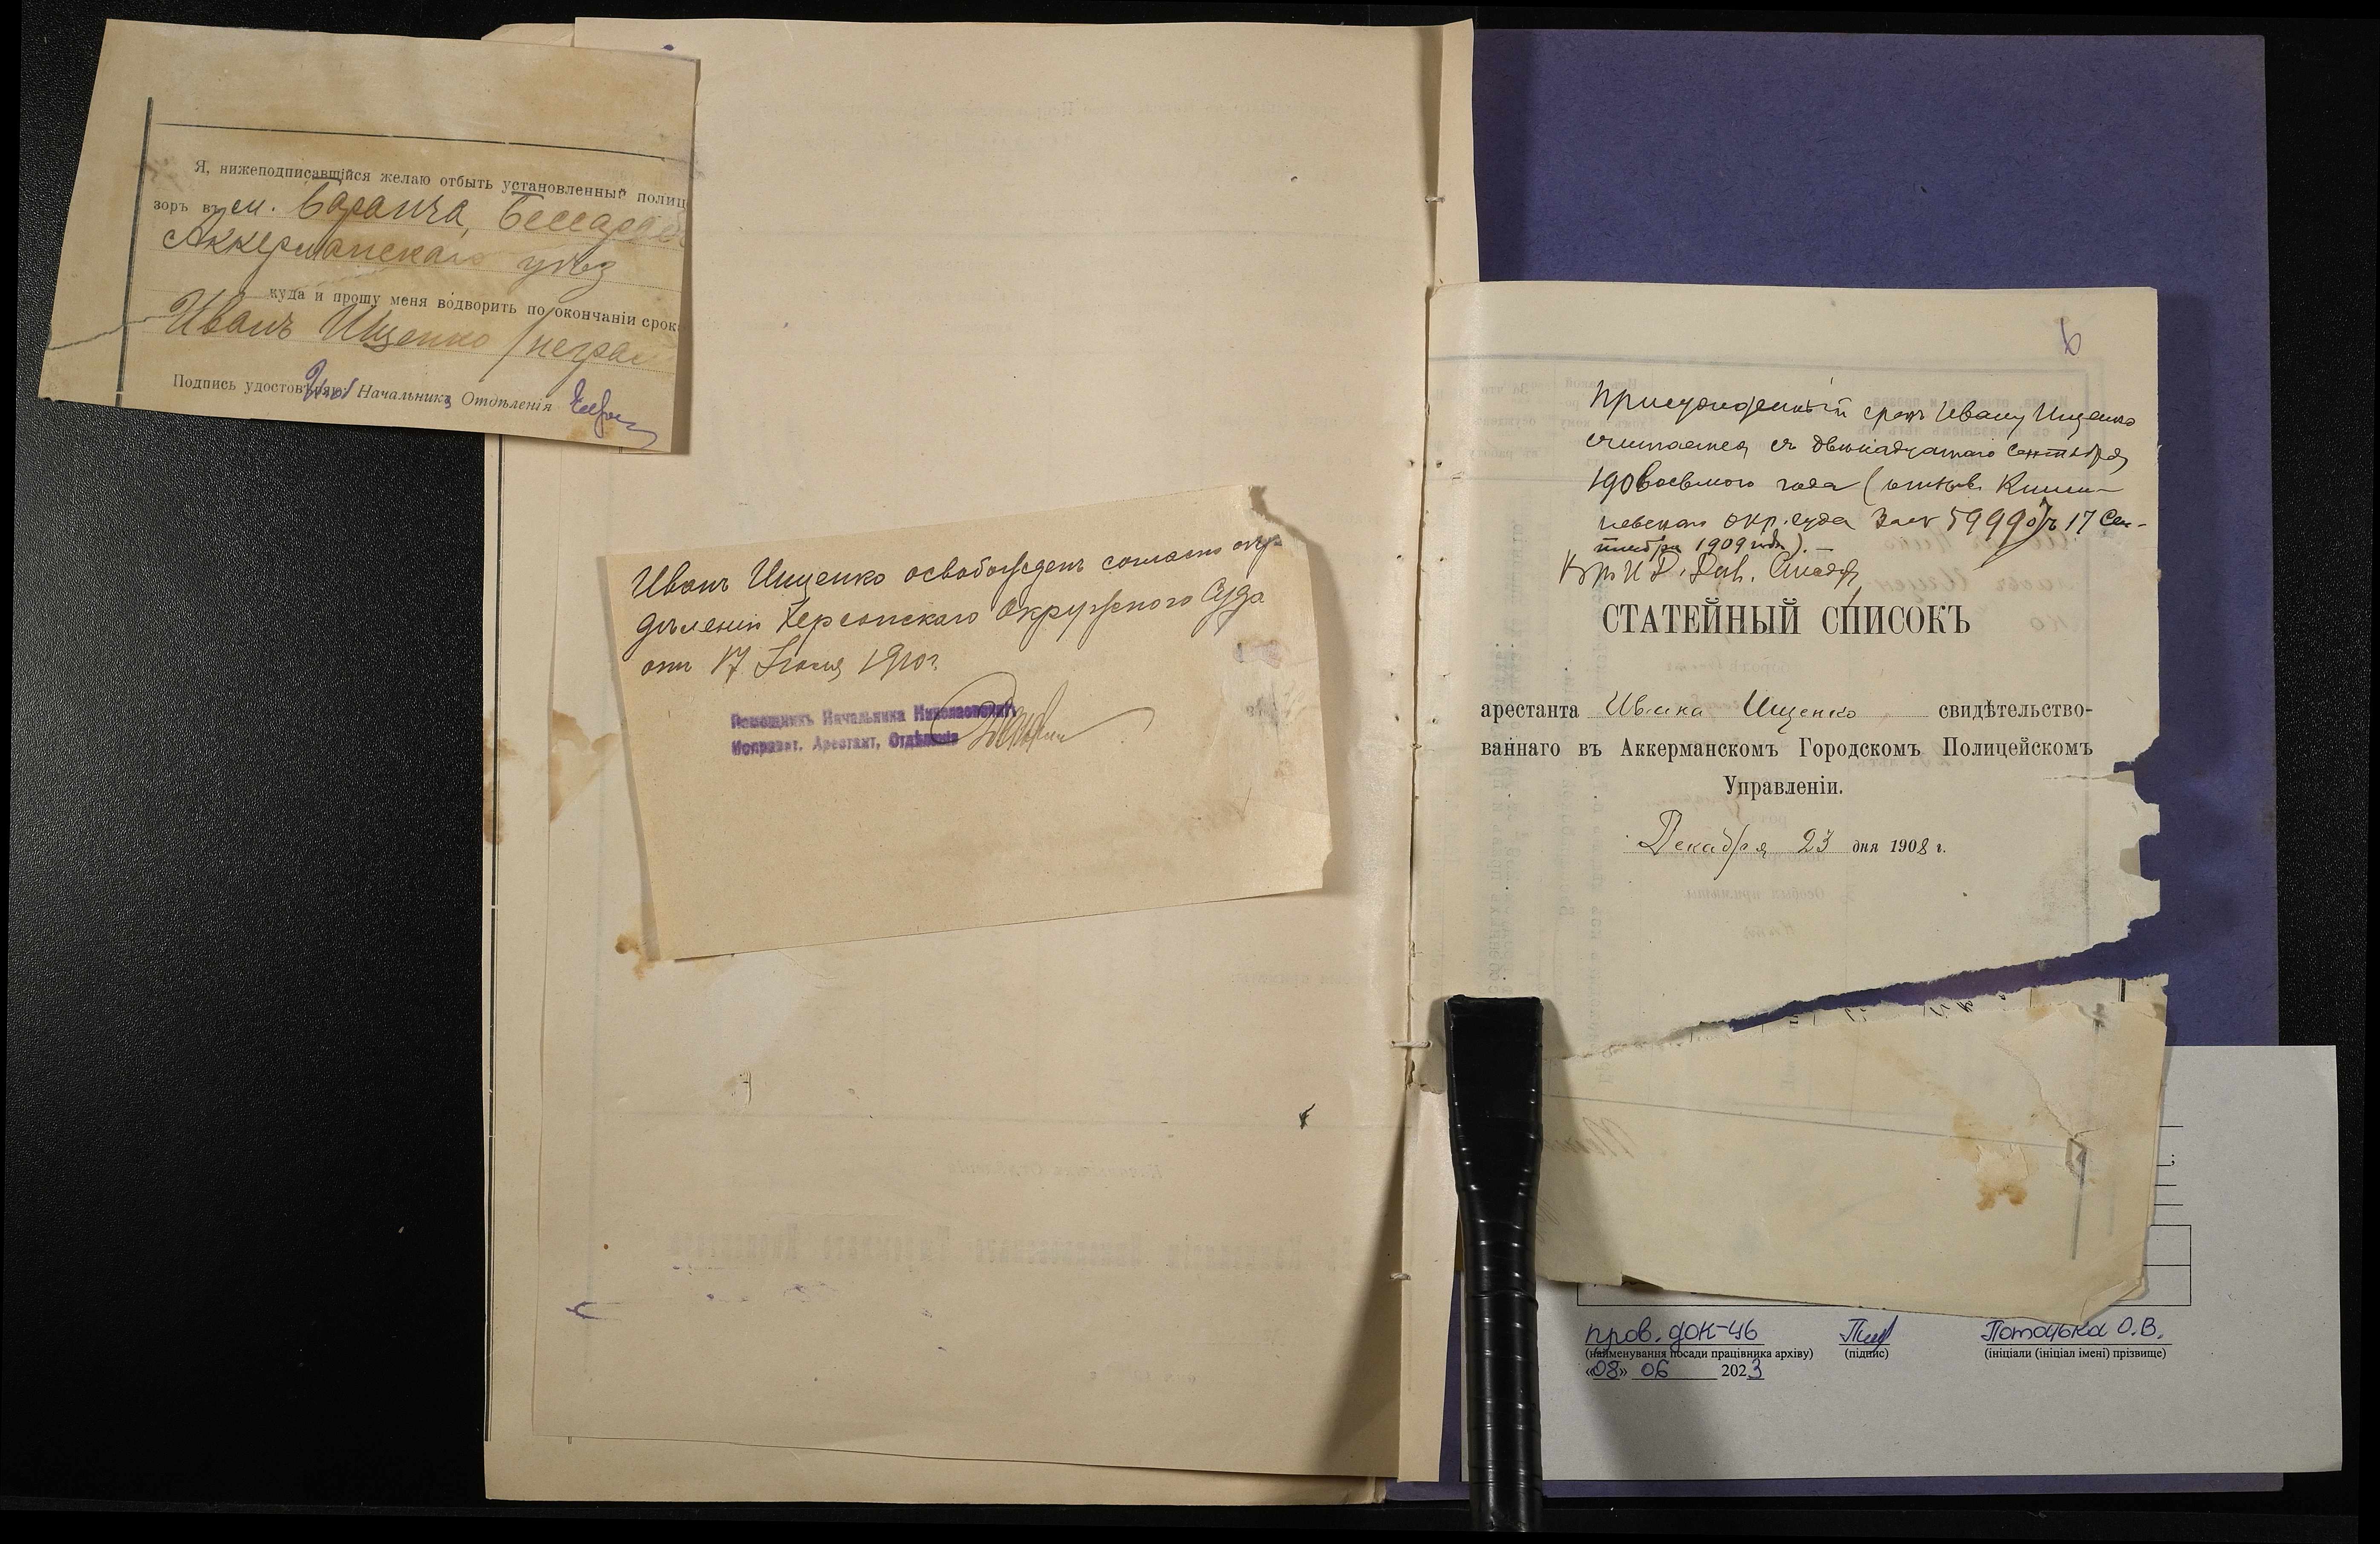 Я, нижеподписавшійся желаю отбыть установленный полиц
зоръ въ м. Барамча, Бессараб
Аккерманскаго уѣз
куда и прошу меня водворить по окончаніи срок
Иванъ Ищенко /неграм
Подпись удостовѣряю: Начальникъ Отдѣленія
Иванъ Ищенко освобожденъ согласно опре-
дѣленія Херсонскаго Окружного Суда
отъ 17 Іюня 1910 г.
Помощникъ Начальника Николаевскаго
Исправит. Арестант. Отдѣленія
6
Присужденный срокъ Ивану Ищенко
считается съ двѣнадцатаго Сентября
190восьмого года (отнош. Кишы-
невскаго окр. суда за № 59990 отъ 17 Сен-
тября 1909 года).
СТАТЕЙНЫЙ СПИСОКЪ
арестанта Ивана Ищенко свидѣтельство-
ваннаго въ Аккерманскомъ Городскомъ Полицейскомъ
Управленіи.
Декабря 23 дня 1908 г.
пров. док-ів Потоцька О.В.
(найменування посади працівника архіву) (підпис) (ініціали (ініціал імені) прізвище)
«08» 06 2023